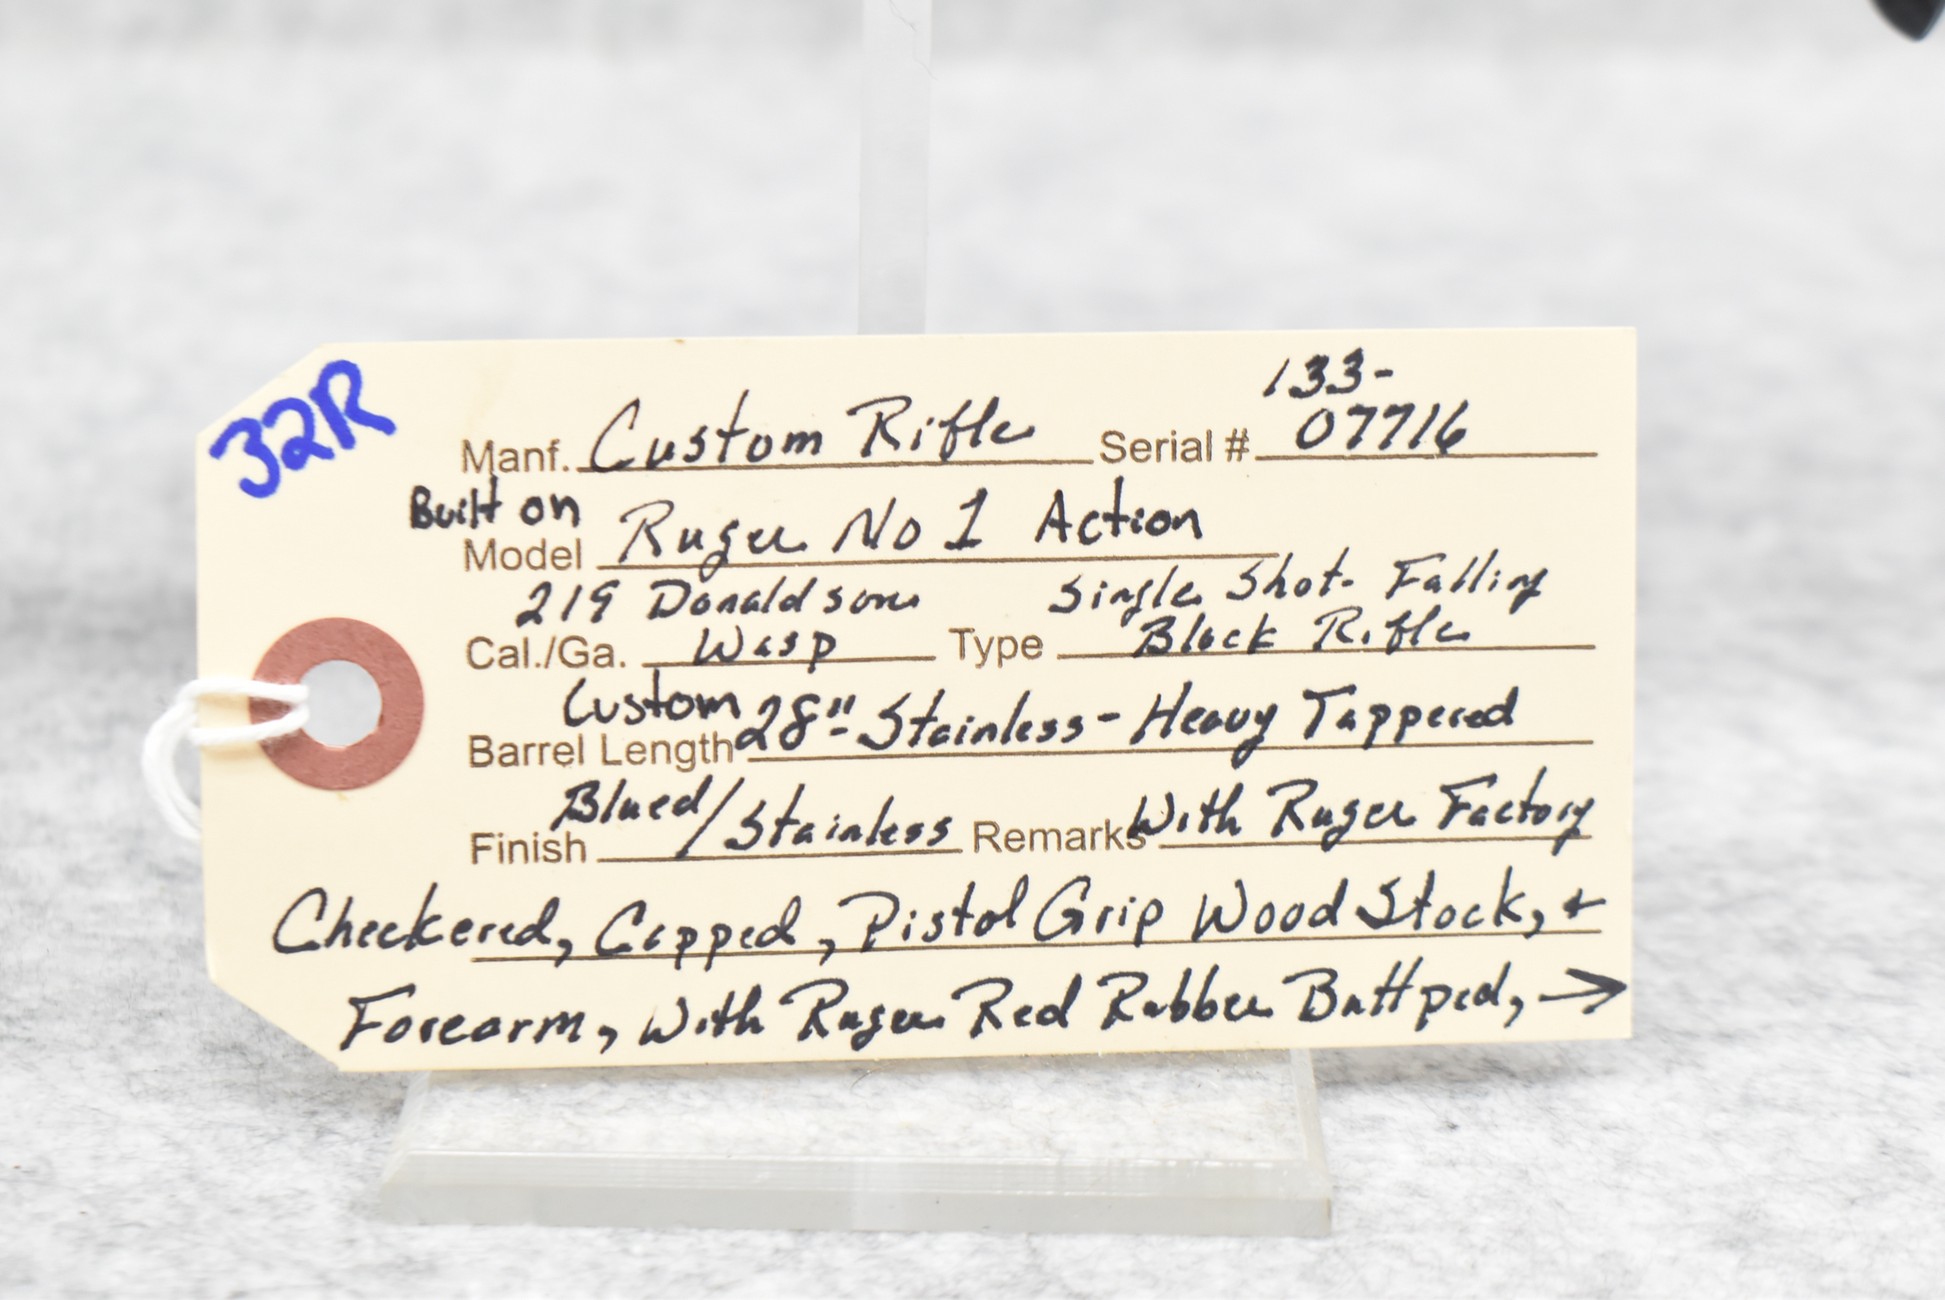 32R
Manf. Custom Rifle Serial # 133-07716
Built on
Model Ruger No 1 Action
219 Donaldson Single Shot- Falling
Cal./Ga. Wasp Type Block Rifle
Custom
Barrel Length 28"- Stainless - Heavy Tappered
Finish Blued/Stainless Remarks With Ruger Factory
Checkered, Capped, Pistol Grip Wood Stock, +
Forearm, with Ruger Red Rubber Buttpad, →